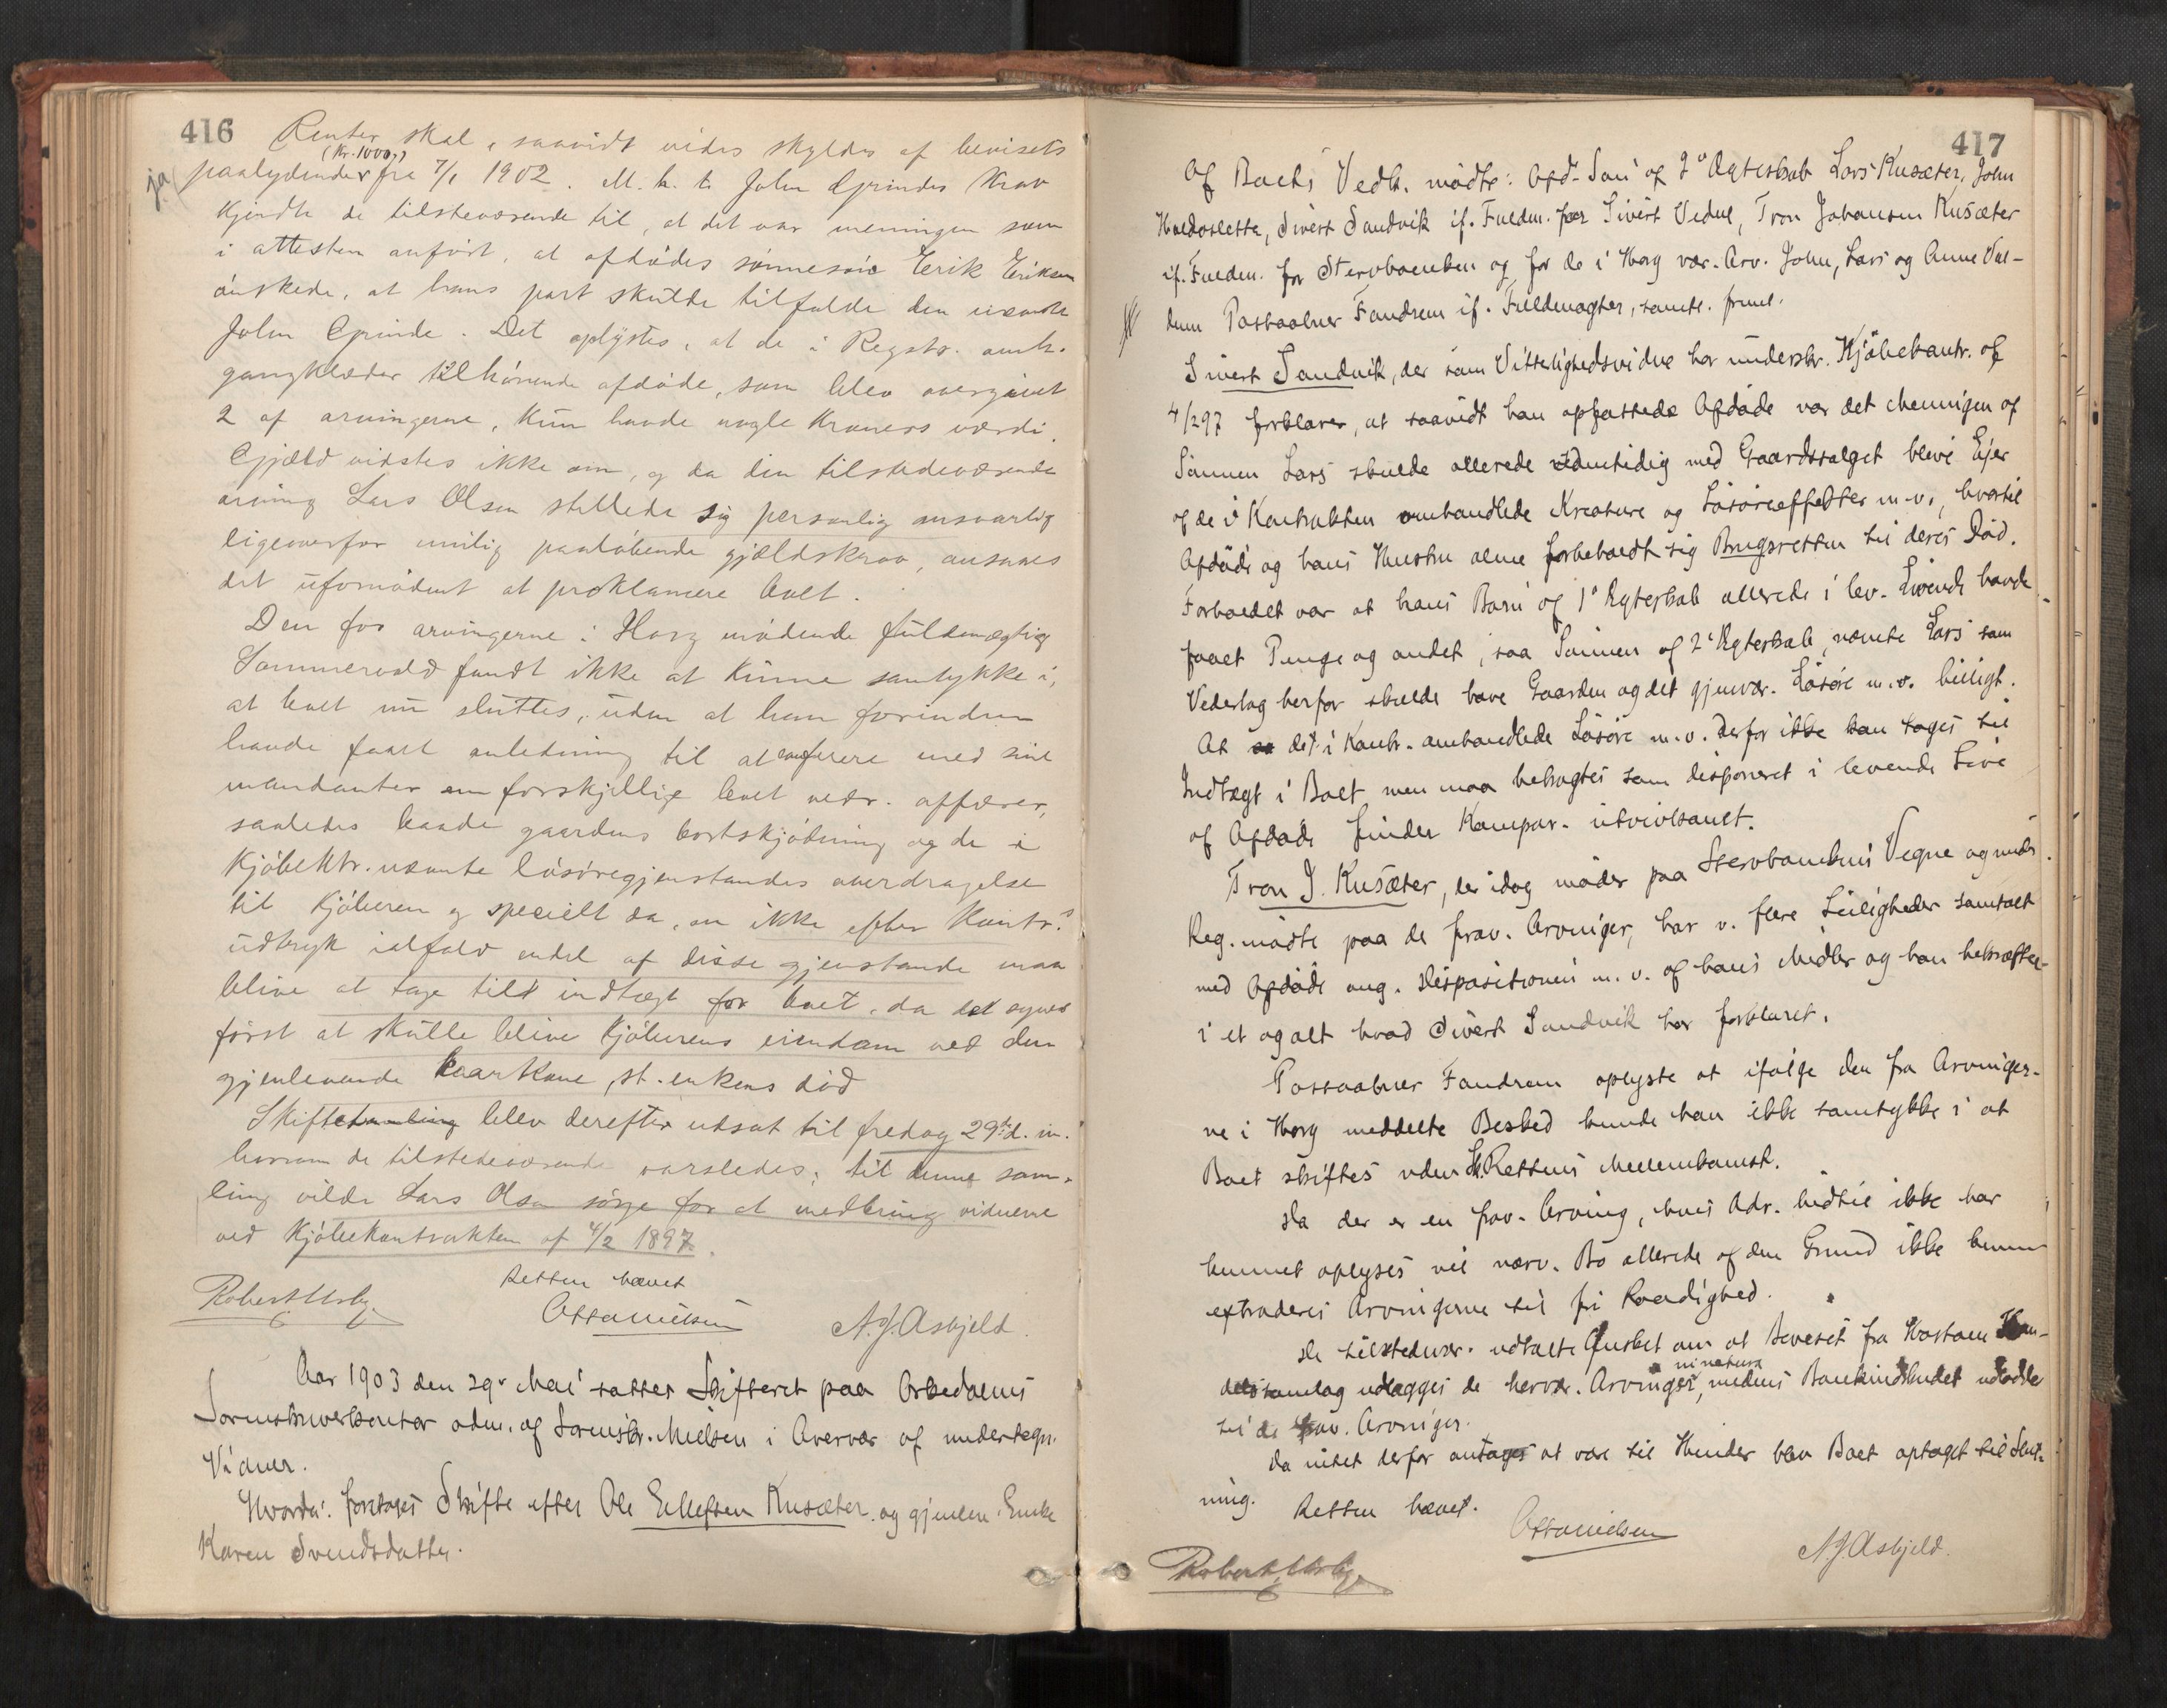 416
Renter skal, saavidt vides skyldes af bevisets
(Kr. 1000,)
ja paalydende fra 7/1 1902. M. h. t. John Grindes Krav
kjendte de tilstedeværende til, at det var meningen som
i attesten anført, at afdødes sønnesøn Eerik Eriksen
ønskede, at hans part skulde tilfalde den nævnte
John Grinde. Det oplystes, at de i Regstr. omh.
gangklæder tilhørende afdøde, som blev overgivet
2 af arvingerne, kun havde nogle Kroners værdi.
Gjæld vidstes ikke om, og da den tilstedeværende
arving Lars Olsen stillede sig personlig ansvarlig
ligeoverfor mulig paaløbende gjældskrav, ansaaes
det ufornødent at proklamere boet.
Den for arvingerne i Horg mødende fuldmægtig
Sommervold fandt ikke at kunne samtykke i,
at boet nu sluttes, uden at han forinden
havde faaet anledning til at conferere med sine
mandanter om forskjellige boet vedr. affærer,
saaledes baade gaardens bortskjødning og de i
Kjøbektr. nævnte løsøregjenstandes overdragelse
til Kjøberen og specielt da, om ikke efter Kontr.s
udtryk ialfald endel af disse gjenstande maa
blive at tage till indtægt for boet, da det synes
først at skulle blive Kjøberens eiendom ved den
gjenlevende Kaarkone, st. enkens død
Skiftesamling blev derefter udsat til fredag 29de d. m.
hvorom de tilstedeværende varsledes; til denne sam-
ling vilde Lars Olsen sørge for at medbring vidnerne
ved Kjøbekontrakten af 4/2 1897.
Retten hævet
Robert Ursby.
Otto Nielsen
A. J. Asbjeld.
Aar 1903 den 29de Mai sattes Skifteret paa Orkedalens
Sorenskriverkontor adm. af Sorenskr. Nielsen i Overvær af undertegn.
Vidner.
Hvorda: foretoges Skifte efter Ole Ellefsen Kusæter og gjenlev. Enke
Karen Svendsdatter.
417
Af Boets Vedk. mødte: Afd. Søn af 2det Ægteskab Lars Kusæter, John
Haldosletta, Sivert Sandvik if. Fuldm. for Sivert Vedul, Tron Johansen Kusæter
if. Fuldm. for Stervboenken og for de i Horg vær. Arv. John, Lars og Anne Val-
dum Postaabner Fandrem if. Fuldmagter, samtl. freml.
Sivert Sandvik, der som Vitterlighedsvidne har underskr. Kjøbekontr. af
4/2 97 forklarer, at saavidt han opfattede Afdøde var det Meningen at
Sønnen Lars skulde allerede samtidig med Gaardsalget blive Ejer
af de i Kontrakten omhandlede Kreature og Løsøreeffekter m.v., hvortil
Afdøde og hans Hustru alene forbeholdt sig Brugsretten til deres Død.
Forholdet var at hans Børn af 1ste Ægteskab allerede i lev. Live havde
faaet Penge og andet, saa Sønnen af 2det Ægteskab, nævnte Lars som
Vederlag herfor skulde have Gaarden og det gjenvær. Løsøre m.v. billigt.
At det i Kontr. omhandlede Løsøre m.v. derfor ikke kan tages til
Indtægt i Boet men maa betragtes som disponeret i levende Live
af Afdøde finder Kompar. utvivlsomt.
Tron J. Kusæter, der idag møder paa Stervboenkens Vegne og under
Reg. mødte paa de frav. Arvinger, har v. flere Leiligheder samtalt
med Afdøde ang. Dispositionen m. v. af hans Midler og han bekræfter
i et og alt hvad Sivert Sandvik har forklaret.
Postaabner Fandrem oplyste at ifølge den fra Arvinger-
ne i Horg meddelte Besked kunde han ikke samtykke i at
Boet skiftes uden Sk.Rettens Mellemkomst.
Da der er en frav. Arving, hvis Adr. hidtil ikke har
kunnet oplyses vil nærv. Bo allerede af den Grund ikke kunne
extraderes Arvingerne til fri Raadighed.
De tilstedevær. udtalte Ønsket om at Beviset fra Hostoen Han-
in natura
delssamlag udlægges de hervær. Arvinger, medens Bankindskudet udlodde
til de frav. Arvinger.
Da intet derfor antages at være til Hinder blev Boet optaget til Slut-
ning.
Retten hævet.
Otto Nielsen
A. J. Asbjeld.
Robert Ursby.